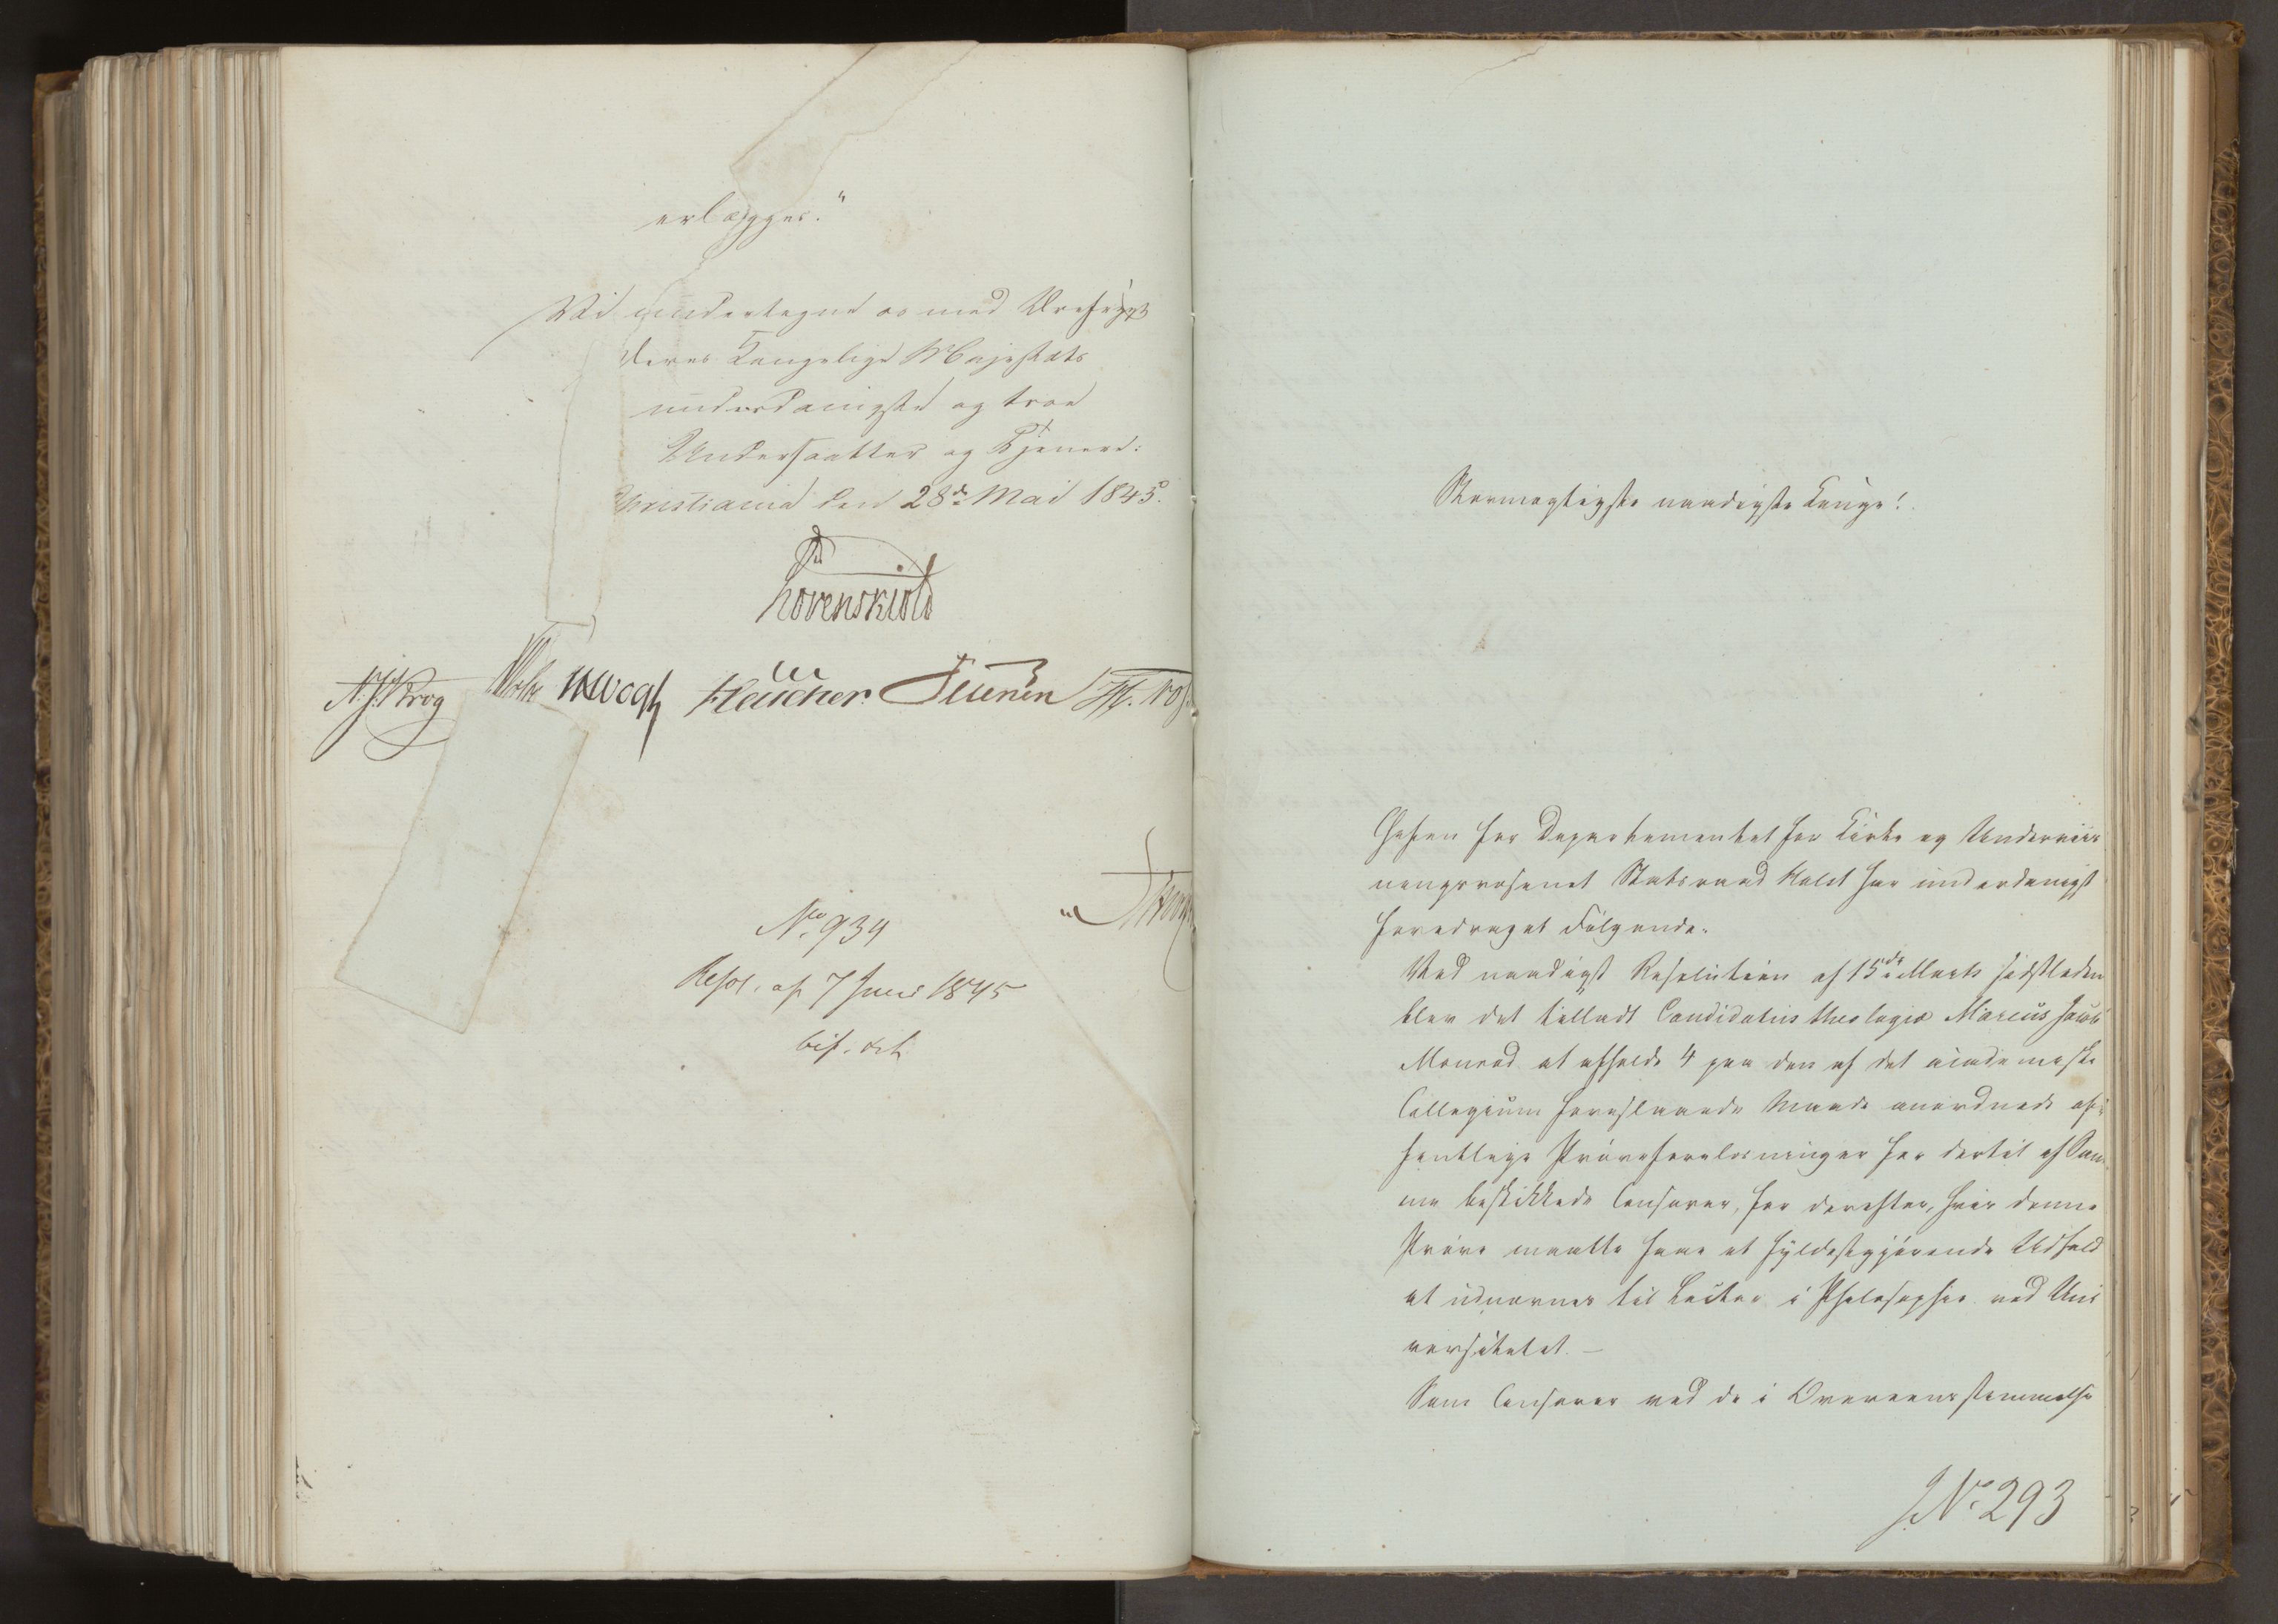 erlægges."
Vi undertegne os med Ærefrygt
Deres Kongelige Majestæts
underdanigste og troe
Undersaatter og Tjenere:
Christiania den 28de Mai 1845.
Løvenskiold
N. J. Krog Vogt Fleischer
No 939
Resol. af 7 Juni 1845
bif. det
Stormægtigste naadigste Konge!
Chefen for Departementet for Kirke og Underviis
ningsvæsenet Statsraad Holst har underdanigst
foredraget Følgende:
Ved naadigst Resolution af 15de Marts sidstleden
blev det tilladt Candidatus theologiæ Marcus Jacob
Monrad at afholde 4 paa den af det academiske
Collegium foreslaaede Maade anordnede of-
fentlige Prøveforelæsninger for dertil af Sam
me beskikkede Censorer, for derefter, hvis denne
Prøve maatte have et fyldestgjørende Udfald
at udnævnes til Lector i Philosophie ved Uni
versitetet. —
Som Censorer ved de i Overeensstemmelse
J. No 293